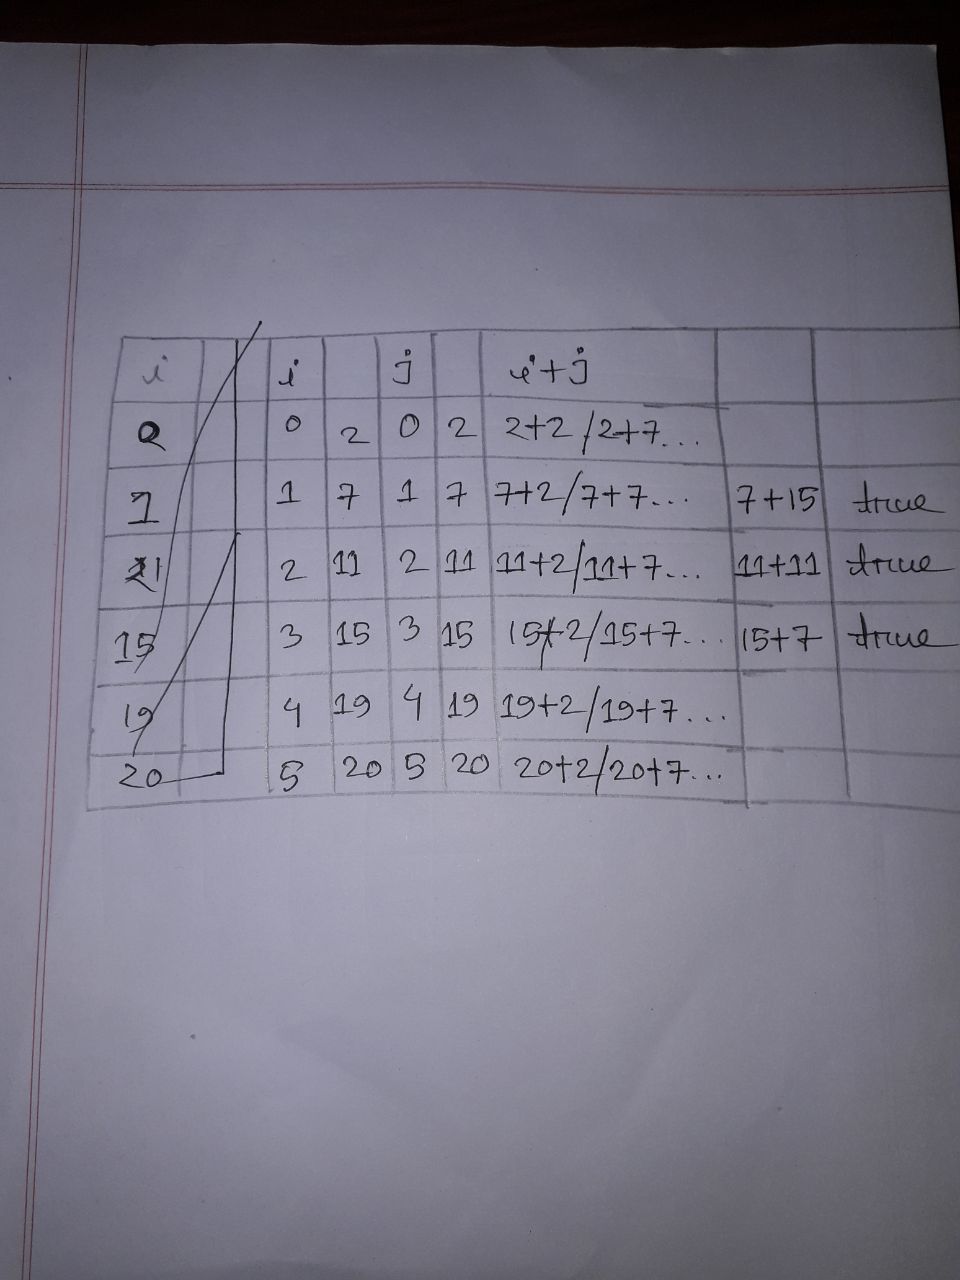 i i j i+j
0 2 0 2 2+2/2+7...
1 7 1 7 7+2/7+7... 7+15 true
2 11 2 11 11+2/11+7... 11+11 true
15 3 15 3 15 15+2/15+7... 15+7 true
19 4 19 4 19 19+2/19+7...
20 5 20 5 20 20+2/20+7...